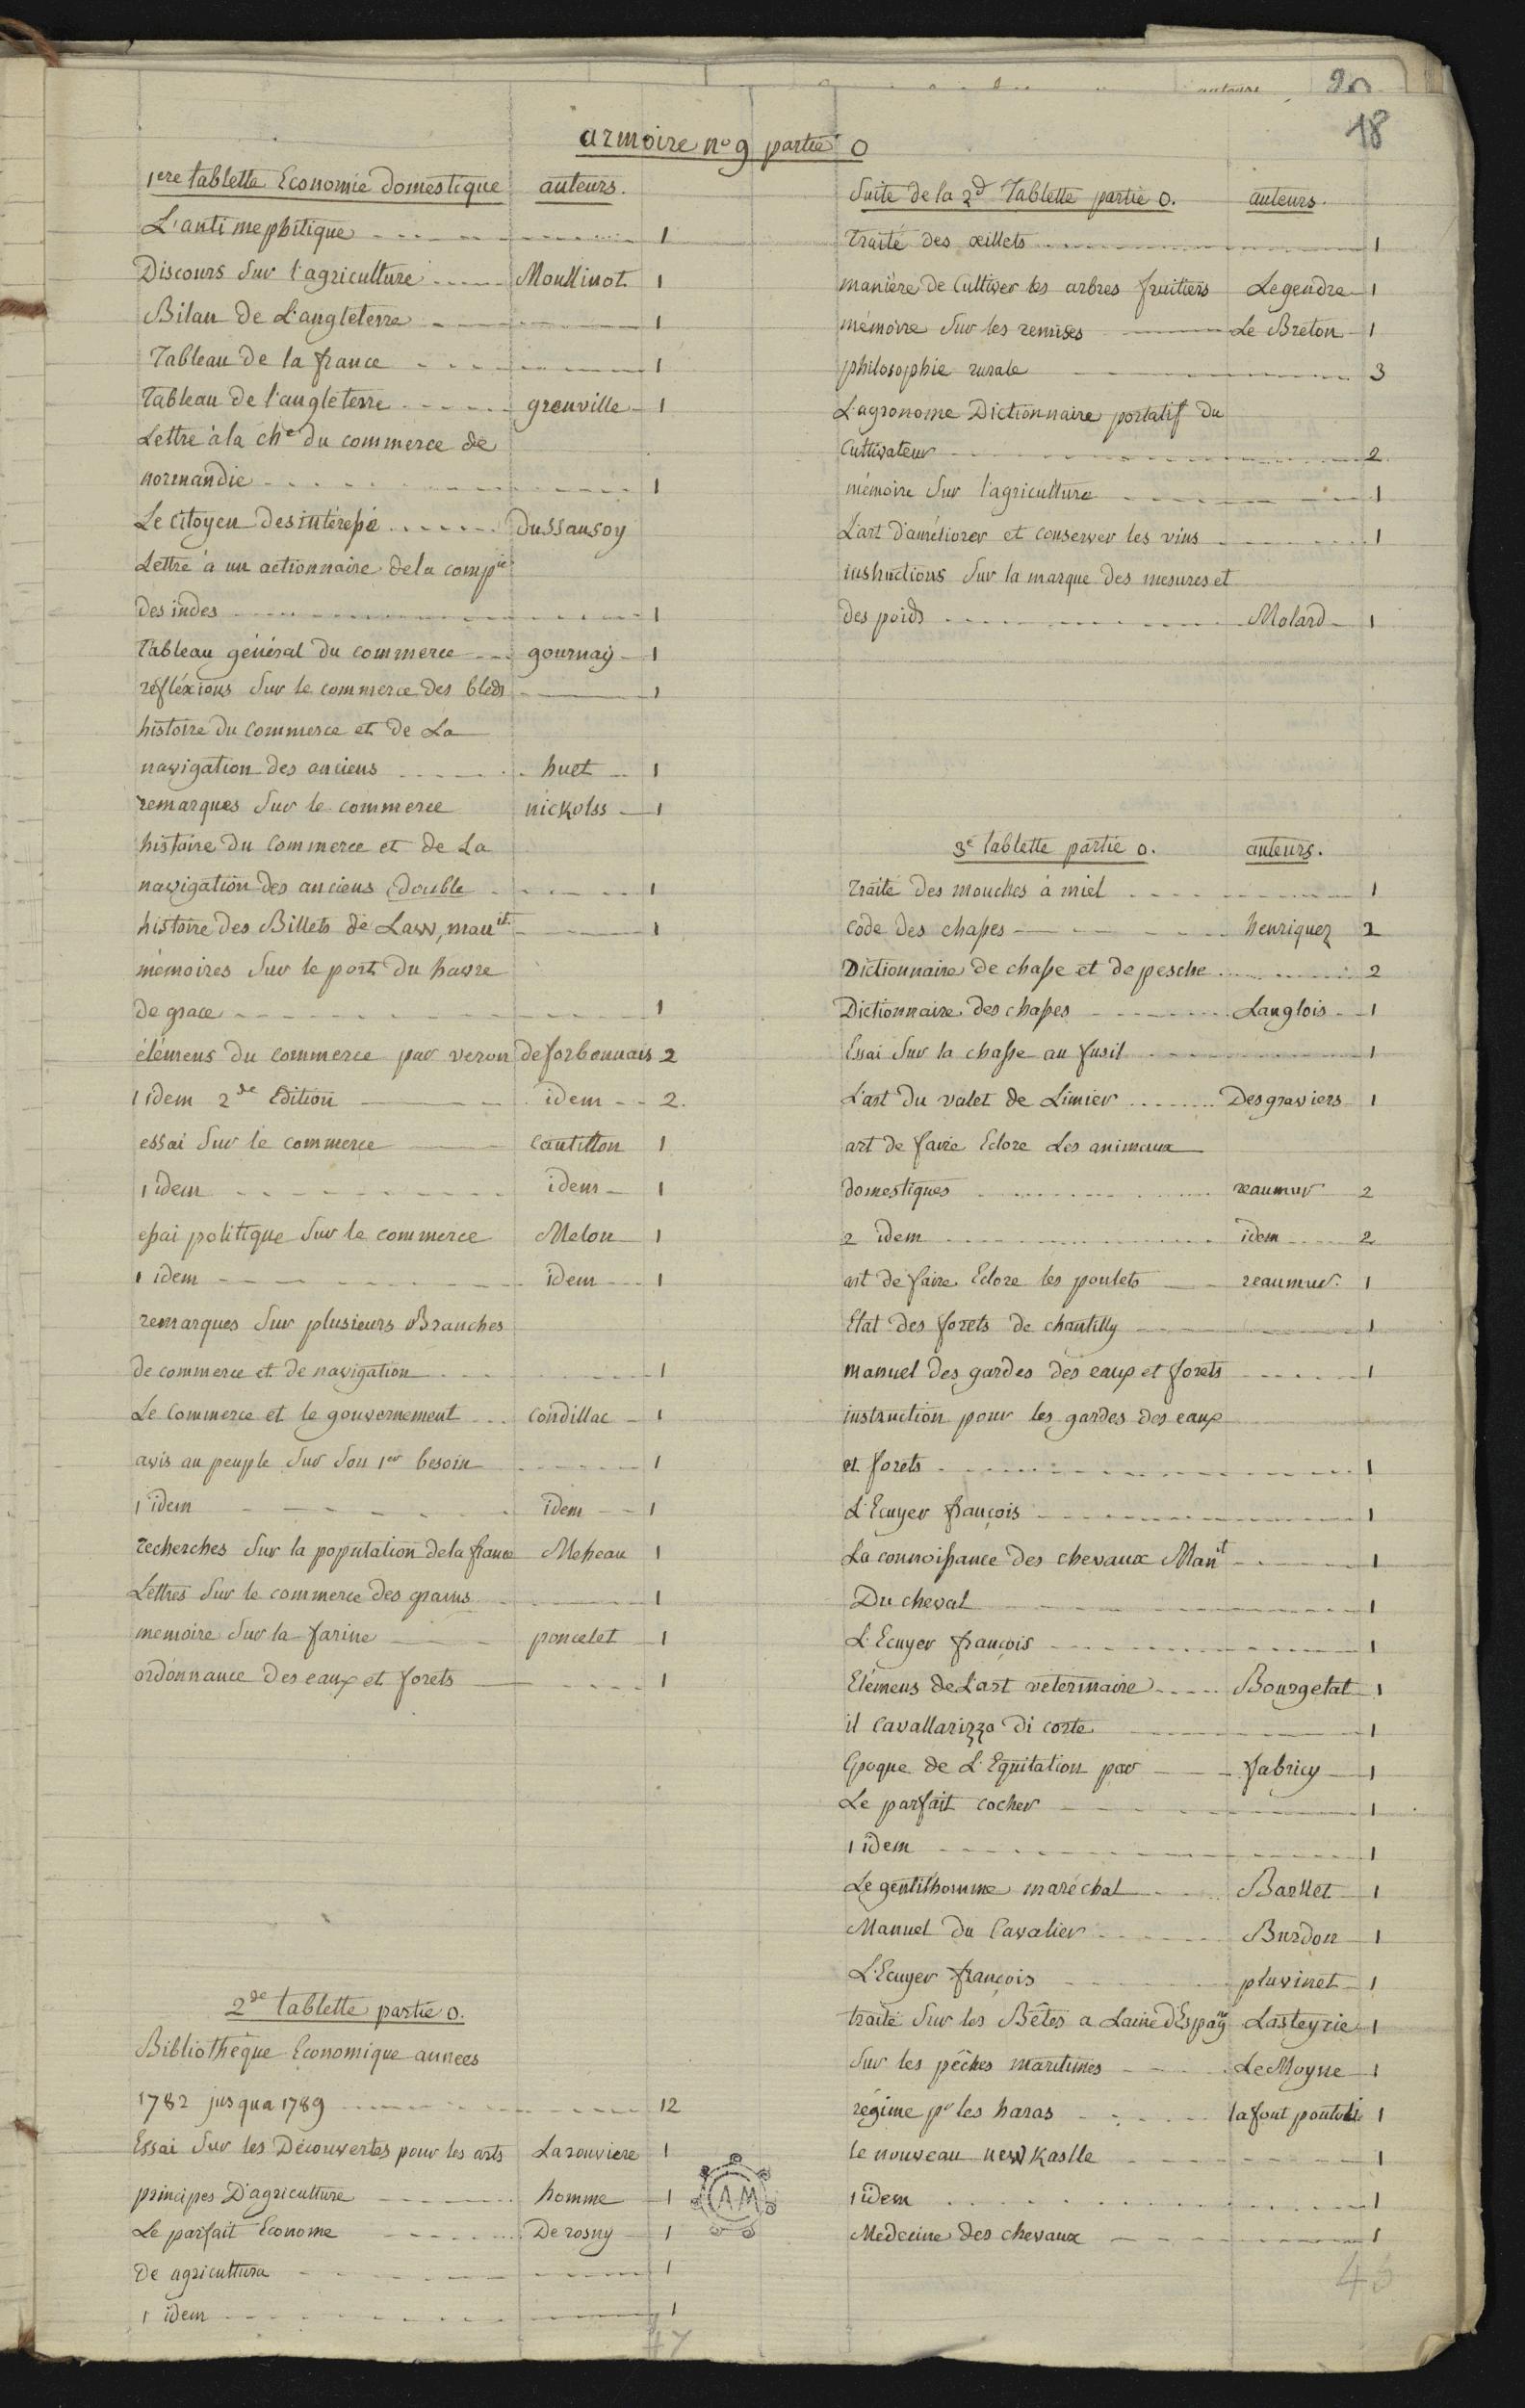 auteurs
20
18
armoire nº 9 partie O
1ere tablette Economie domestique auteurs.
L'anti mephitique 1
Discours sur l'agriculture Moullinot 1
Bilan de L'angleterre 1
Tableau de la france 1
Tableau de l'angleterre grenville 1
Lettre à la che du commerce de
normandie 1
Le Citoyen desintéressé Dussausoy
Lettre à un actionnaire de la compie
des indes 1
Tableau général du commerce gournay 1
réfléxions sur le commerce des bleds 1
histoire du commerce et de La
navigation des anciens huet 1
remarques sur le commerce nickolss 1
histoire du Commerce et de La
navigation des anciens double 1
histoire des Billets de Laws, manit. 1
mémoires sur le port du havre
de grace 1
élémens du commerce par veron de forbonnais 2
1 idem 2de Edition idem 2.
essai sur le commerce Cantillon 1
1 idem idem 1
essai politique sur le commerce Melon 1
1 idem idem 1
remarques sur plusieurs Branches
de commerce et de navigation 1
Le Commerce et le gouvernement Condillac 1
avis au peuple sur son 1er besoin 1
1 idem idem 1
recherches sur la population de la france Meheau 1
Lettres sur le commerce des grains 1
memoire sur la farine poncelet 1
ordonnance des eaux et forets 1
2de tablette partie O.
Bibliothèque Economique années
1782 jusqua 1789 12
Essai sur les Découvertes pour les arts Larouviere 1
principes D'agriculture homme 1
Le parfait Econome De rosny 1
De agricultura 1
1 idem 1
47
AM
Suite de la 2d Tablette partie O. auteurs.
Traité des œillets 1
manière de Cultiver les arbres fruitiers Legendre 1
mémoire sur les remises Le Breton 1
philosophie rurale 3
L'agronome Dictionnaire portatif du
Cultivateur 2
mémoire sur l'agriculture 1
L'art d'améliorer et conserver les vins 1
instructions sur la marque des mesures et
des poids Molard 1
3e tablette partie O. auteurs.
Traité des mouches à miel 1
Code des chasses henriquez 2
Dictionnaire de chasse et de pesche 2
Dictionnaire des chasses Langlois 1
Essai sur la chasse au fusil 1
L'art du valet de Limier Desgraviers 1
art de faire Eclore Les animaux
domestiques reaumur 2
2 idem idem 2
art de faire Eclore les poulets reaumur. 1
Etat des forets de chantilly 1
manuel des gardes des eaux et forets 1
instruction pour les gardes des eaux
et forets 1
L'Ecuyer françois 1
La connoissance des chevaux Manit 1
Du cheval 1
L'Ecuyer françois 1
Elémens de L'art veterinaire Bourgelat 1
il Cavallarizzo di corte 1
Epoque de L'Equitation par fabricy 1
Le parfait cocher 1
1 idem 1
Le gentilhomme maréchal Bartlet 1
Manuel du Cavalier Burdon 1
L'Ecuyer françois pluvinet 1
traité sur les Bêtes a Laine D'Espagne Lasteyrie 1
sur les pêches maritimes Le Moyne 1
régime pr les haras lafont pouloti 1
le nouveau new Kastle 1
1 idem 1
Medecine des chevaux 1